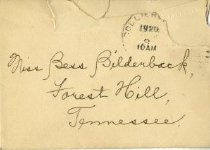 COLLIER
1920
10AM
Miss Bess Bilderback,
Forest Hill,
Tennessee.